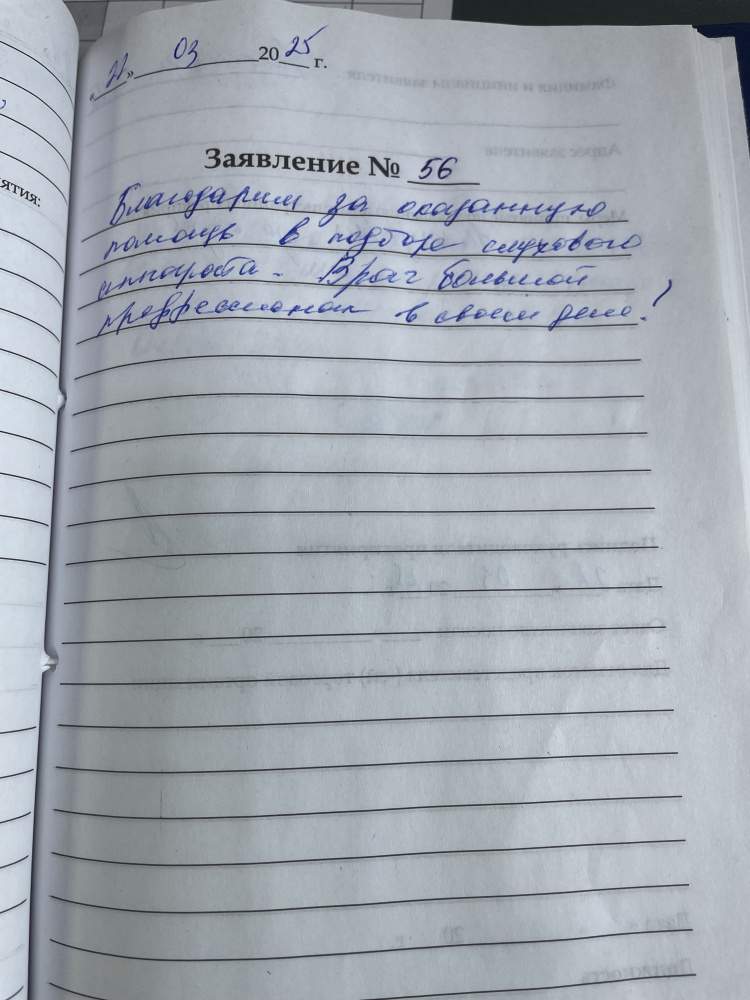 «22» 03 2025 г.
Заявление № 56
Благодарим за оказанную
помощь в подборе слухового
аппарата. Врач большой
профессионал в своем деле!
ятия: